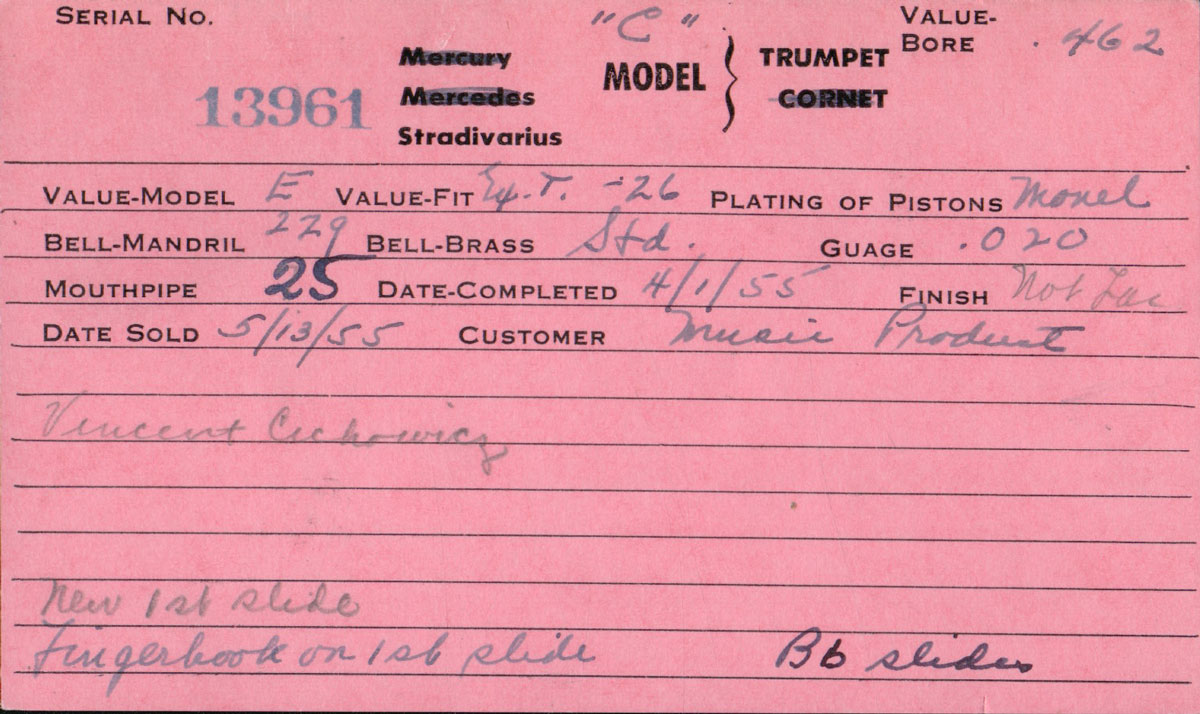 SERIAL No. "C" VALUE-
Mercury MODEL } TRUMPET BORE .462
13961 Mercedes CORNET
Stradivarius
VALUE-MODEL E VALUE-FIT Ex.T. -26 PLATING OF PISTONS Monel
BELL-MANDRIL 229 BELL-BRASS Std. GUAGE .020
MOUTHPIPE 25 DATE-COMPLETED 4/1/55 FINISH Not Lac
DATE SOLD 5/13/55 CUSTOMER Music Product
Vincent Cichowicz
New 1st slide
Fingerhook on 1st slide Bb slides